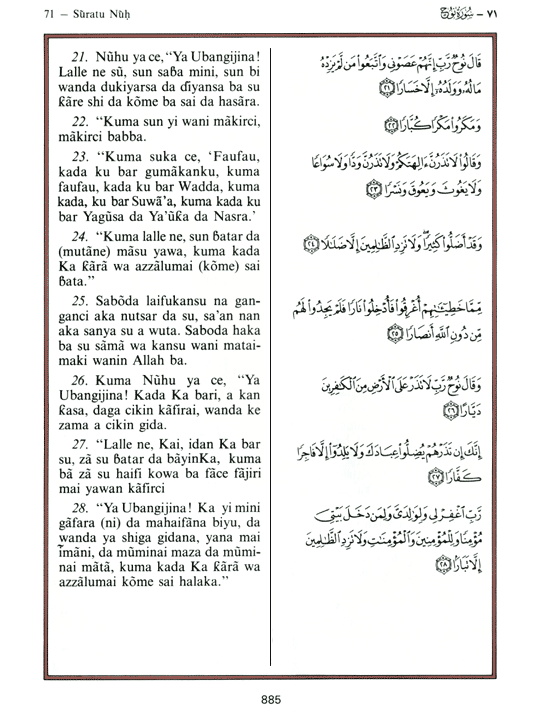 71 — Sũratu Nũḥ
سُورَةُ نُوحٍ — ٧١
21. Nũhu ya ce, “Ya Ubangijina!
Lalle ne sũ, sun saɓa mini, sun bi
wanda dukiyarsa da ɗiyansa ba su
ƙãre shi da kõme ba sai da hasãra.
22. “Kuma sun yi wani mãkirci,
mãkirci babba.
23. “Kuma suka ce, ‘Faufau,
kada ku bar gumãkanku, kuma
faufau, kada ku bar Wadda, kuma
kada, ku bar Suwã’a, kuma kada ku
bar Yagũsa da Ya’ũƙa da Nasra.’
24. “Kuma lalle ne, sun ɓatar da
(mutãne) mãsu yawa, kuma kada
Ka ƙãrã wa azzãlumai (kõme) sai
ɓata.”
25. Sabõda laifukansu na gan-
ganci aka nutsar da su, sa’an nan
aka sanya su a wuta. Saboda haka
ba su sãmã wa kansu wani matai-
maki wanin Allah ba.
26. Kuma Nũhu ya ce, “Ya
Ubangijina! Kada Ka bari, a kan
ƙasa, daga cikin kãfirai, wanda ke
zama a cikin gida.
27. “Lalle ne, Kai, idan Ka bar
su, zã su ɓatar da bãyinKa, kuma
bã zã su haifi kowa ba fãce fãjiri
mai yawan kãfirci
28. “Ya Ubangijina! Ka yi mini
gãfara (ni) da mahaifãna biyu, da
wanda ya shiga gidana, yana mai
ĩmãni, da mũminai maza da mũmi-
nai mãtã, kuma kada Ka ƙãrã wa
azzãlumai kõme sai halaka.”
قَالَ نُوحٌ رَّبِّ إِنَّهُمْ عَصَوْنِي وَاتَّبَعُوا مَن لَّمْ يَزِدْهُ
مَالُهُ وَوَلَدُهُ إِلَّا خَسَارًا ﴿٢١﴾
وَمَكَرُوا مَكْرًا كُبَّارًا ﴿٢٢﴾
وَقَالُوا لَا تَذَرُنَّ ءَالِهَتَكُمْ وَلَا تَذَرُنَّ وَدًّا وَلَا سُوَاعًا
وَلَا يَغُوثَ وَيَعُوقَ وَنَسْرًا ﴿٢٣﴾
وَقَدْ أَضَلُّوا كَثِيرًا وَلَا تَزِدِ الظَّالِمِينَ إِلَّا ضَلَالًا ﴿٢٤﴾
مِّمَّا خَطِيئَاتِهِمْ أُغْرِقُوا فَأُدْخِلُوا نَارًا فَلَمْ يَجِدُوا لَهُم
مِّن دُونِ اللَّهِ أَنصَارًا ﴿٢٥﴾
وَقَالَ نُوحٌ رَّبِّ لَا تَذَرْ عَلَى الْأَرْضِ مِنَ الْكَافِرِينَ
دَيَّارًا ﴿٢٦﴾
إِنَّكَ إِن تَذَرْهُمْ يُضِلُّوا عِبَادَكَ وَلَا يَلِدُوا إِلَّا فَاجِرًا
كَفَّارًا ﴿٢٧﴾
رَّبِّ اغْفِرْ لِي وَلِوَالِدَيَّ وَلِمَن دَخَلَ بَيْتِيَ
مُؤْمِنًا وَلِلْمُؤْمِنِينَ وَالْمُؤْمِنَاتِ وَلَا تَزِدِ الظَّالِمِينَ
إِلَّا تَبَارًا ﴿٢٨﴾
885